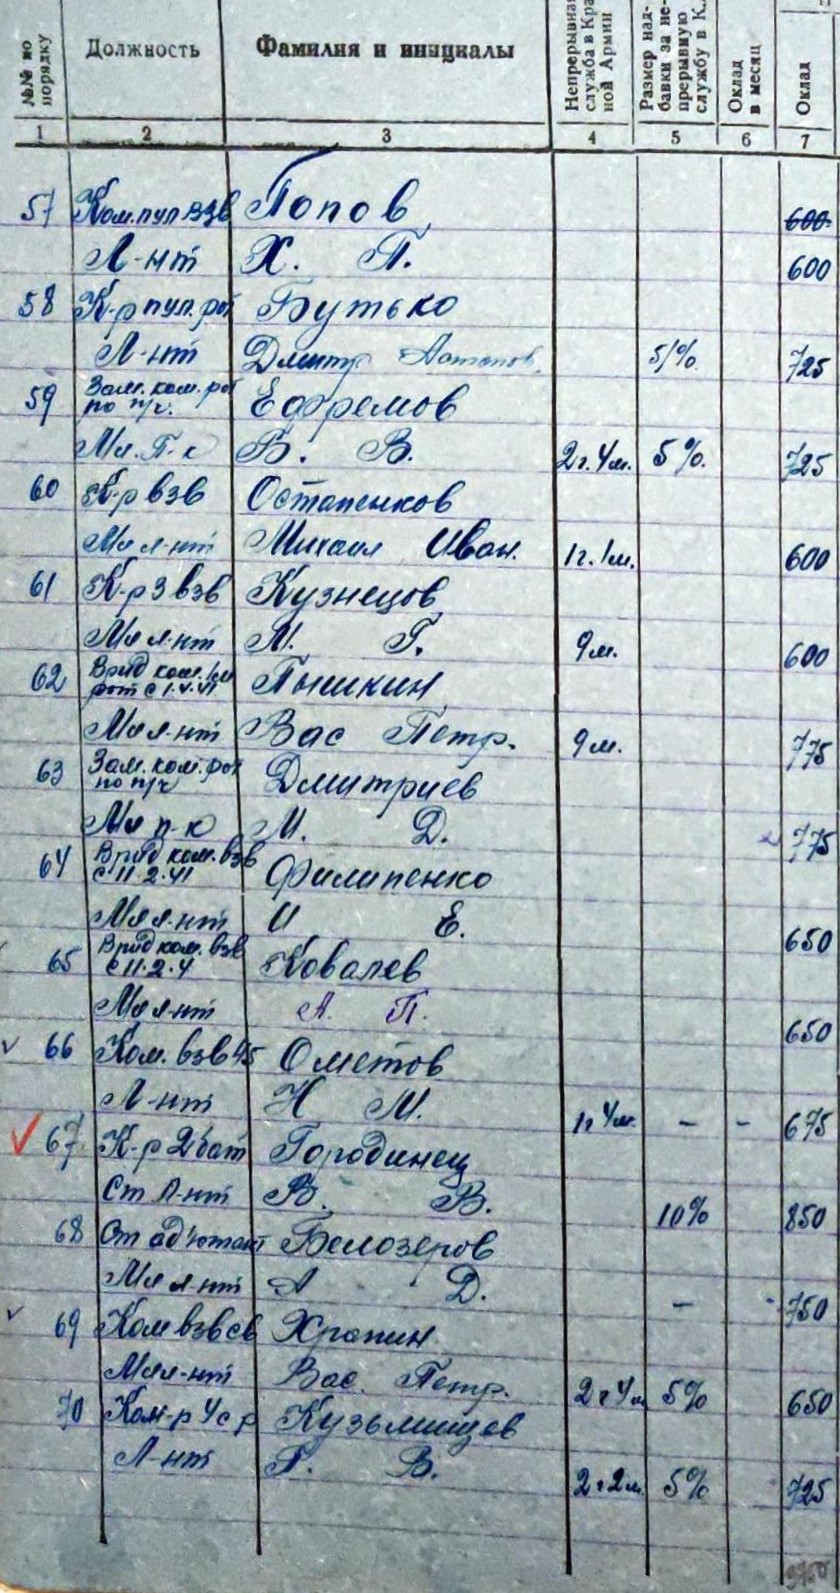 №№ по порядку | Должность | Фамилия и инициалы | Непрерывная служба в Кра ной Армии | Размер над- бавки за не- прерывную службу в К. | Оклад в месяц | Оклад
1 | 2 | 3 | 4 | 5 | 6 | 7
57 Ком. пул взв Попов 600
Л-нт Х. П. 600
58 К-р пул. рот Бутько
Л-нт Дмитр 5% 725
59 Зам. ком. рот по п/ч. Ефремов
Мл. П-к В. В. 2 г. 4 м. 5%. 725
60 К-р взв Остапенков
Мл л-нт Михаил Иван. 1 г. 1 м. 600
61 К-р 3 взв Кузнецов
Мл л-нт М. Г. 9 м. 600
62 Врид ком. рот с 1.V.41 Пышкин
Мл л-нт Вас Петр. 9 м. 775
63 Зам. ком. рот по п/ч Дмитриев
Мл п-к М. Д. 775
64 Врид ком. взв с 11.2.41 Филипенко
Мл л-нт И Е. 650
65 Врид ком. взв с 11.2.4 Ковалев
Мл л-нт А. П. 650
66 Ком. взв 45 Ометов
Л-нт Н М. 1 г 4 м. – – 675
67 К-р 2 бат Городинец
Ст Л-нт В. В. 10% 850
68 Ст ад'ютант Белозеров
Мл л-нт А Д. – 750
69 Ком взв св Храпин
Мл л-нт Вас. Петр. 2 г 4 м 5% 650
70 Ком-р 4 с р Кузьмищев
Л-нт Г. В. 2 г 2 м. 5% 725